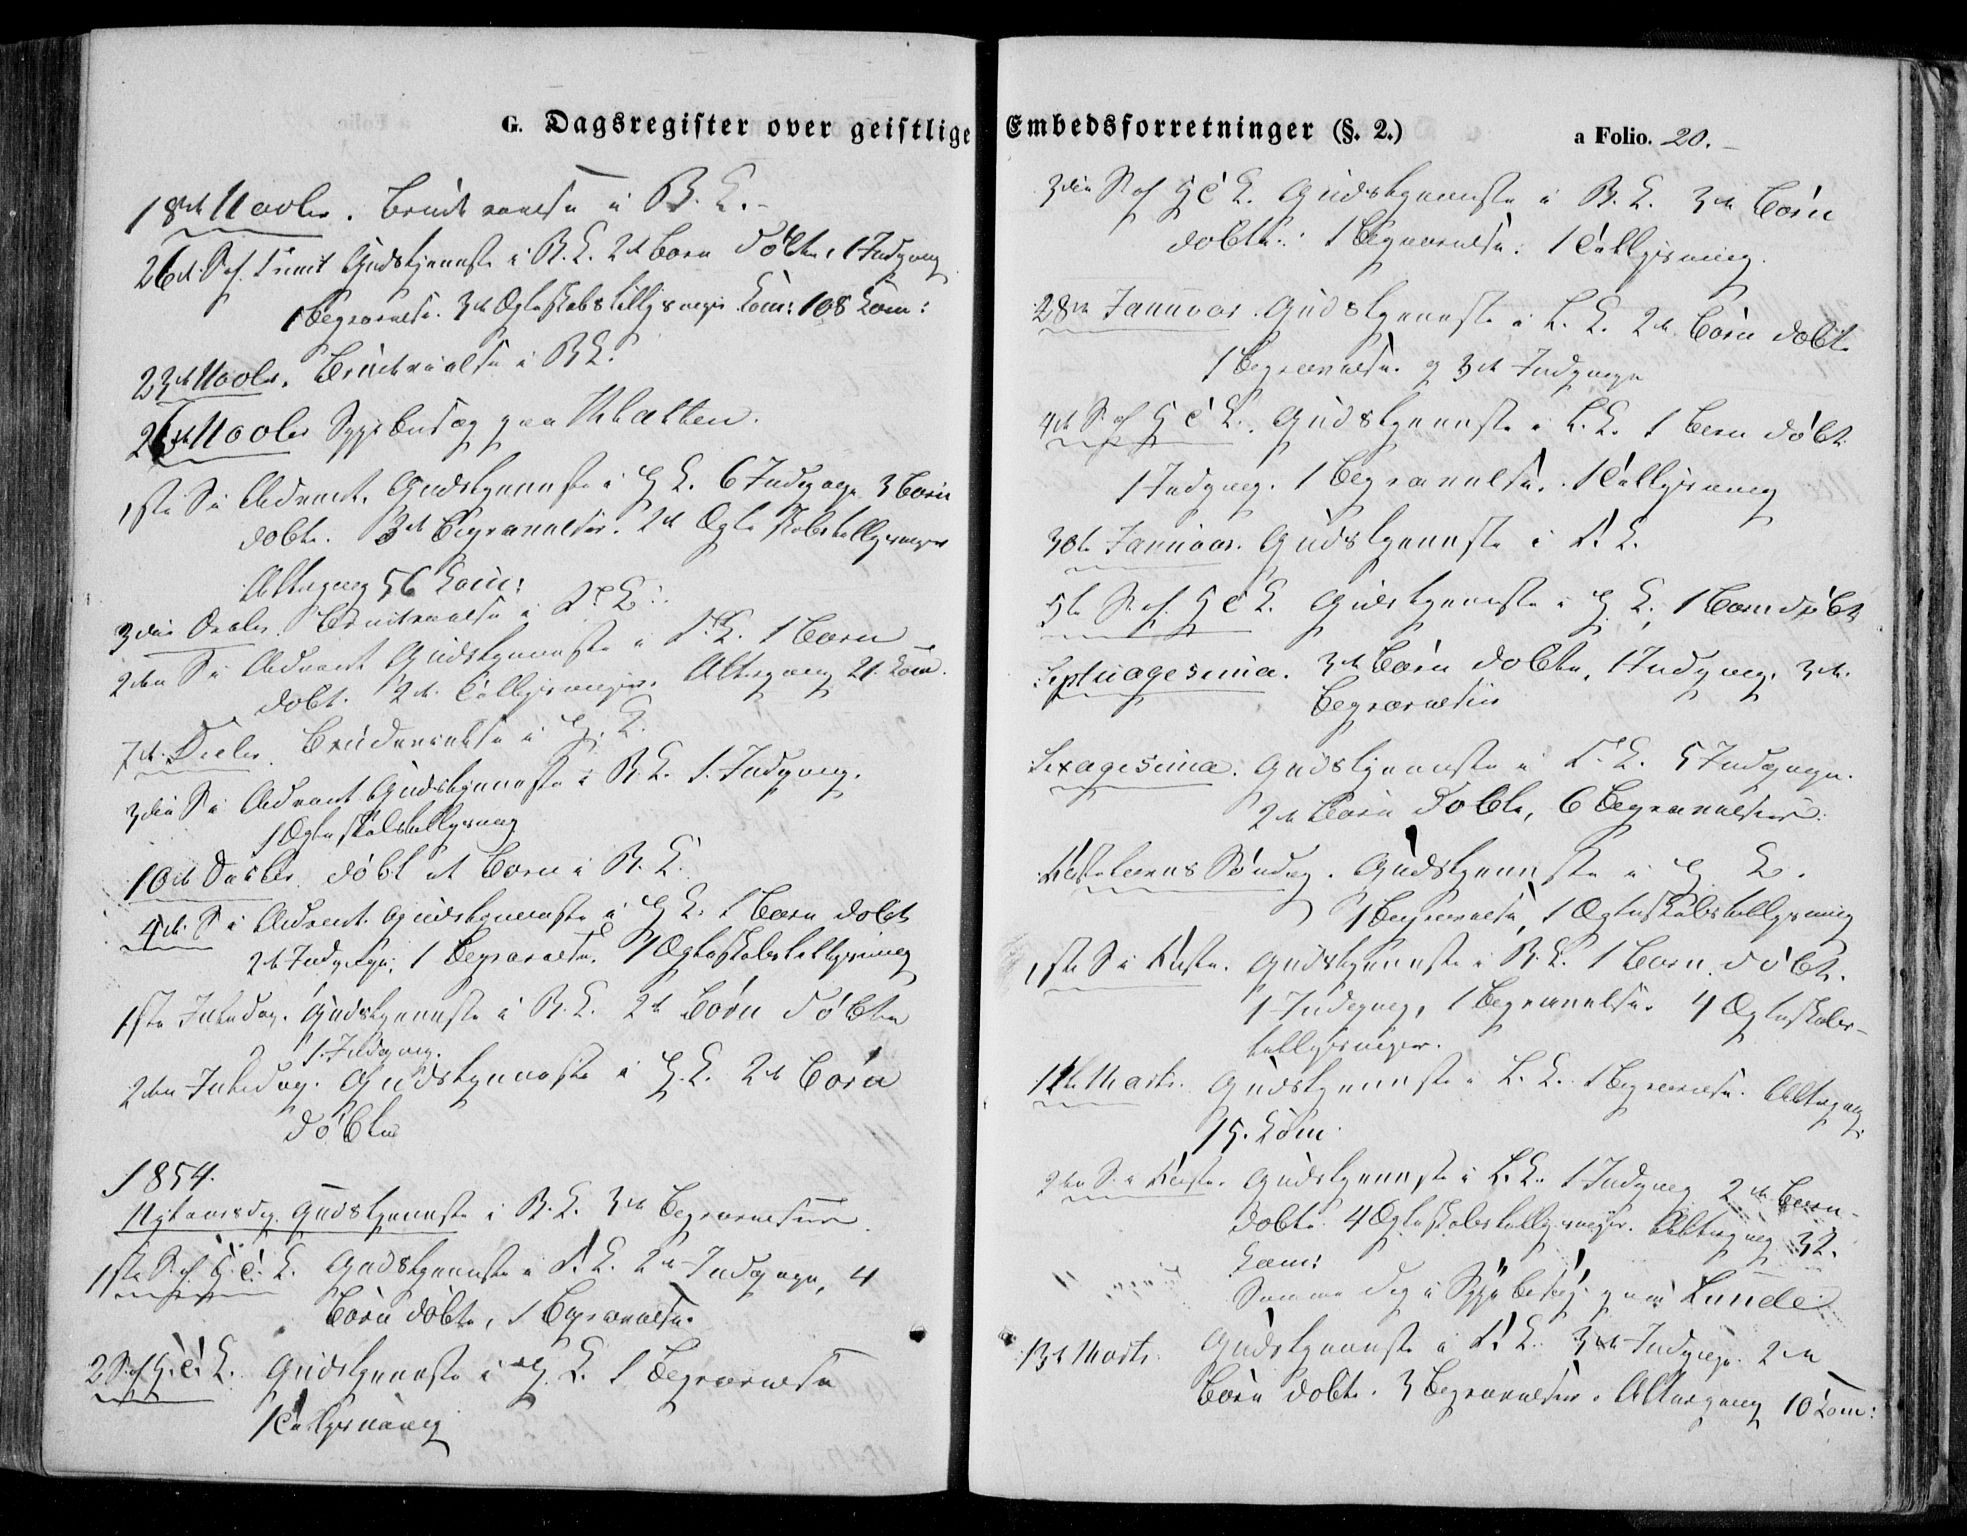 G. Dagsregister over geistlige Embedsforretninger (§. 2.) a Folio. 20.
18de Novbr. Brudevielse i B. K.
26d S. ef. Trinit Gudstjeneste i B. K. 2de Børn døbte, 1 Indgang
1 Begravelse. 3de Ægteskabstillysninger Com: 108 Com:
23de Novbr. Brudevielse i B K.
26de Novbr Sygebesøg paa
1ste S. i Advent. Gudstjeneste i H K. 6 Indgange 3 Børn
døbte. 3de Begravelser. 2de Ægteskabstillysninger
Altergang 56 Com:
3die Decbr. Brudevielse i K.
2den S i Advent Gudstjeneste i K. 1 Barn
døbt. 2de Tillysninger. Altergang 21 Com.
7de Decbr. Brudevielse i H. K.
3die S i Advent Gudstjeneste i B. K. 1. Indgang.
1 Ægteskabstillysning
10de Decbr. døbt et Barn i B. K.
4de S i Advent. Gudstjeneste i H K. 1 Barn døbt
2de Indgange, 1 Begravelse. 1 Ægteskabstillysning
1ste Juledag. Gudstjeneste i B. K. 2de Børn døbte
1. Indgang.
2den Juledag. Gudstjeneste i H. K. 2de Børn
døbte
1854.
Nytaarsdag. Gudstjeneste i B. K. 3de Begravelser
1ste S. ef. H. 3 K. Gudstjeneste i K. 2de Indgange, 4
Børn døbte, 1 Begravelse.
2 S. ef H. 3. K. Gudstjeneste i H. K. 1 Begravelse
1 Tillysning
3die S. ef H 3 K. Gudstjeneste i B. K. 3de Børn
døbte. 1 Begravelse. 1 Tillysning.
28de Januar. Gudstjeneste i L. K. 2de Børn døbte
1 Begravelse. og 3de Indgange
4de S. ef H 3 K. Gudstjeneste i L. K. 1 Barn døbt
1 Indgang. 1 Begravelse. 1 Tillysning
30te Januar. Gudstjeneste i K.
5te S. ef. H 3 K. Gudstjeneste i H K. 1 Barn døbt
Septuagesima. 3de Børn døbte, 1 Indgang, 3de
Begravelser
Sexagesima. Gudstjeneste i K. 5 Indgange.
2de Børn døbte, 6 Begravelser.
Fastelavns Søndag. Gudstjeneste i H K.
1 Begravelse, 1 Ægteskabstillysning
1ste S i Faste. Gudstjeneste i B. K. 1 Barn døbt.
1 Indgang, 1 Begravelse. 4 Ægteskabs-
tillysninger.
Marts. Gudstjeneste i L. K. 1 Begravelse. Altergang
15. Com.
2den S. i Faste. Gudstjeneste i L. K. 1 Indgang 2de Børn
døbte. 4 Ægteskabstillysninger. Altergang 32.
Com:
Samme dag i Sygebesøg paa Lunde
13de Marts. Gudstjeneste i K. 3de Indgange. 2de
Børn døbte. 3 Begravelser. Altergang 10 Com: